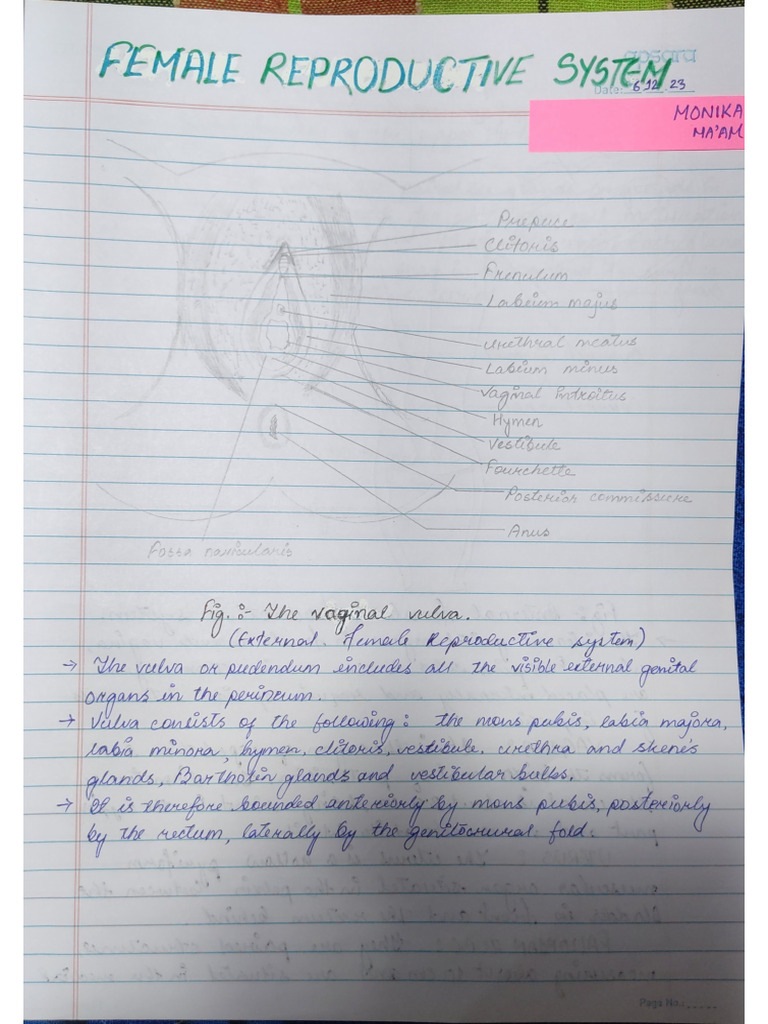 FEMALE REPRODUCTIVE SYSTEM
apsara
Date: 6 12 23
MONIKA
MA'AM
Prepuce
Clitoris
Frenulum
Labium majus
Urethral meatus
Labium minus
Vaginal Introitus
Hymen
Vestibule
Fourchette
Posterior commissure
Anus
Fossa navicularis
Fig. :- The vaginal vulva.
(External Female Reproductive system)
→ The vulva or pudendum includes all the visible external genital
organs in the perineum.
→ Vulva consists of the following : the mons pubis, labia majora,
labia minora, hymen, clitoris, vestibule, urethra and skene's
glands, Bartholin glands and vestibular bulbs.
→ It is therefore bounded anteriorly by mons pubis, posteriorly
by the rectum, laterally by the genitocrural fold.
Page No.: